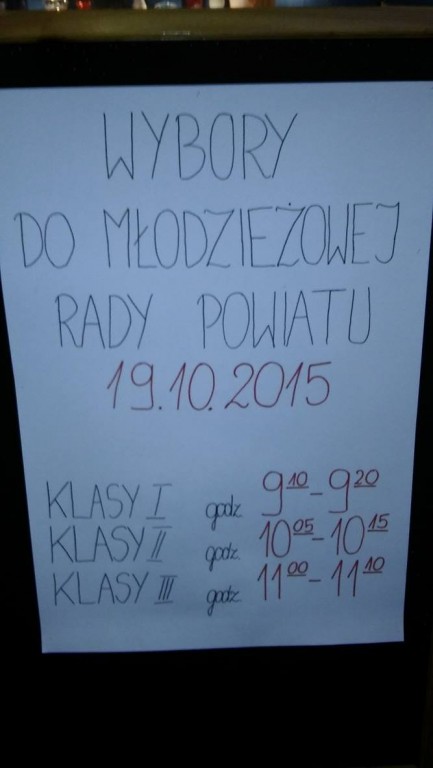 WYBORY
DO MŁODZIEŻOWEJ
RADY POWIATU
19.10.2015
KLASY I godz. 9¹⁰-9²⁰
KLASY II godz. 10⁰⁵-10¹⁵
KLASY III godz. 11⁰⁰-11¹⁰